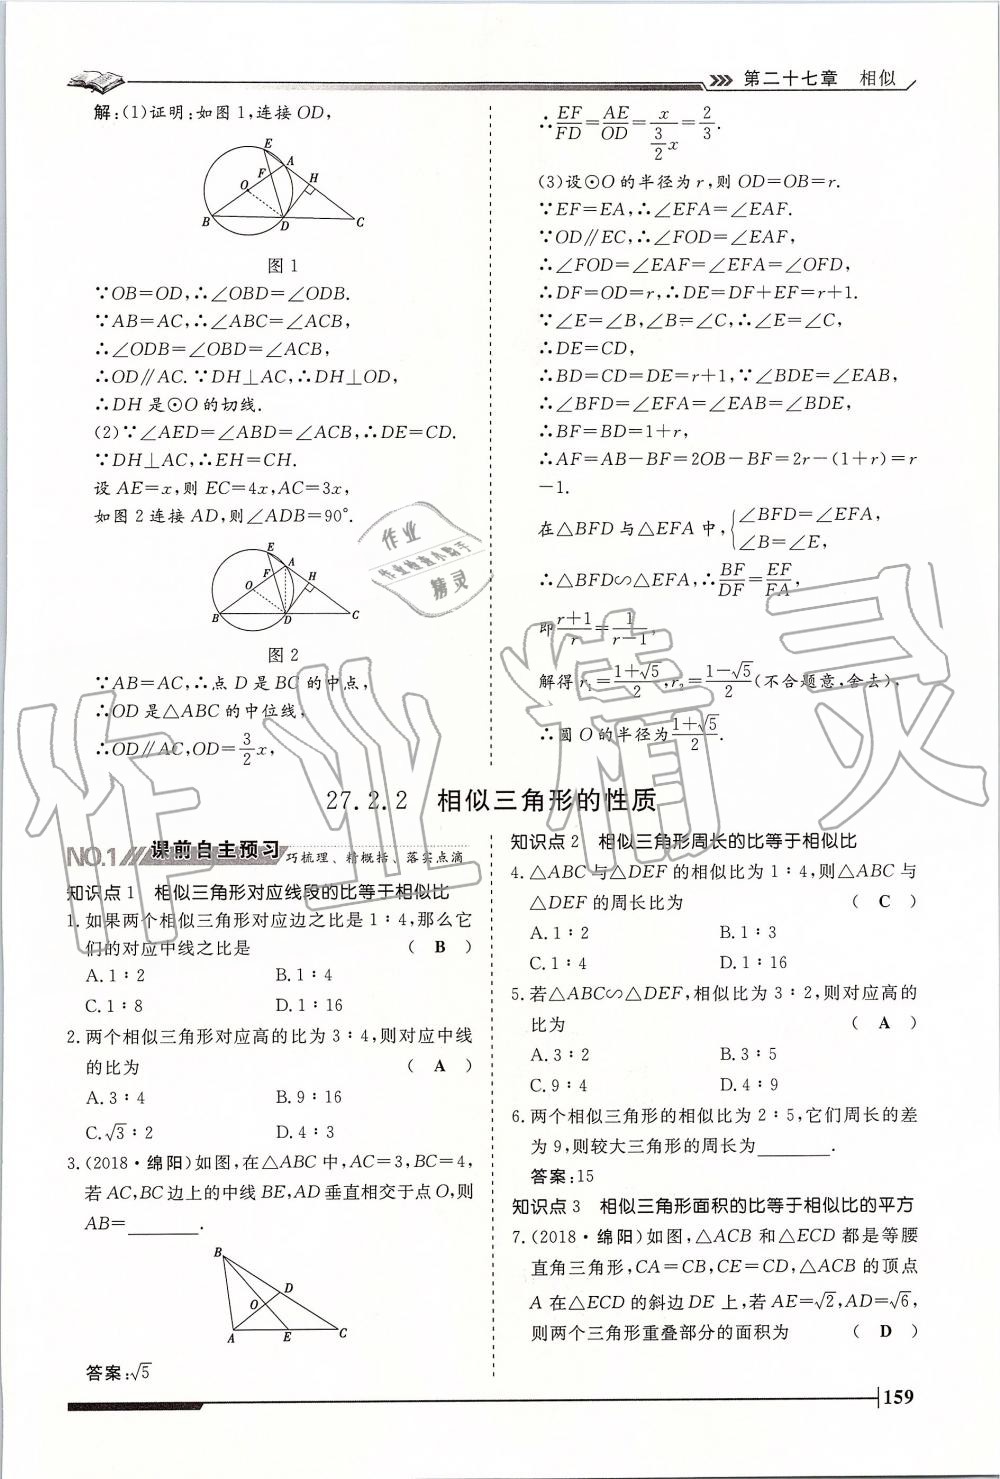 第二十七章 相似
解:(1)证明:如图1,连接OD,
E A H F O B D C
图1
∵OB=OD,∴∠OBD=∠ODB.
∵AB=AC,∴∠ABC=∠ACB,
∴∠ODB=∠OBD=∠ACB,
∴OD∥AC.∵DH⊥AC,∴DH⊥OD,
∴DH是⊙O的切线.
(2)∵∠AED=∠ABD=∠ACB,∴DE=CD.
∵DH⊥AC,∴EH=CH.
设AE=x,则EC=4x,AC=3x,
如图2连接AD,则∠ADB=90°.
E A H F O B D C
图2
∵AB=AC,∴点D是BC的中点,
∴OD是△ABC的中位线,
∴OD∥AC,OD=3/2x,
∴EF/FD=AE/OD=x/(3/2x)=2/3.
(3)设⊙O的半径为r,则OD=OB=r.
∵EF=EA,∴∠EFA=∠EAF.
∵OD∥EC,∴∠FOD=∠EAF,
∴∠FOD=∠EAF=∠EFA=∠OFD,
∴DF=OD=r,∴DE=DF+EF=r+1.
∵∠E=∠B,∠B=∠C,∴∠E=∠C,
∴DE=CD,
∴BD=CD=DE=r+1,∵∠BDE=∠EAB,
∴∠BFD=∠EFA=∠EAB=∠BDE,
∴BF=BD=1+r,
∴AF=AB-BF=2OB-BF=2r-(1+r)=r
-1.
在△BFD与△EFA中,{∠BFD=∠EFA,
∠B=∠E,
∴△BFD∽△EFA,∴BF/DF=EF/FA,
即(r+1)/r=1/(r-1),
解得r₁=(1+√5)/2,r₂=(1-√5)/2(不合题意,舍去),
∴圆O的半径为(1+√5)/2.
27.2.2 相似三角形的性质
NO.1 课前自主预习 巧梳理、精概括、落实点滴
知识点1 相似三角形对应线段的比等于相似比
1.如果两个相似三角形对应边之比是1∶4,那么它
们的对应中线之比是 ( B )
A.1∶2 B.1∶4
C.1∶8 D.1∶16
2.两个相似三角形对应高的比为3∶4,则对应中线
的比为 ( A )
A.3∶4 B.9∶16
C.√3∶2 D.4∶3
3.(2018·绵阳)如图,在△ABC中,AC=3,BC=4,
若AC,BC边上的中线BE,AD垂直相交于点O,则
AB=________.
B D O A E C
答案:√5
知识点2 相似三角形周长的比等于相似比
4.△ABC与△DEF的相似比为1∶4,则△ABC与
△DEF的周长比为 ( C )
A.1∶2 B.1∶3
C.1∶4 D.1∶16
5.若△ABC∽△DEF,相似比为3∶2,则对应高的
比为 ( A )
A.3∶2 B.3∶5
C.9∶4 D.4∶9
6.两个相似三角形的相似比为2∶5,它们周长的差
为9,则较大三角形的周长为________.
答案:15
知识点3 相似三角形面积的比等于相似比的平方
7.(2018·绵阳)如图,△ACB和△ECD都是等腰
直角三角形,CA=CB,CE=CD,△ACB的顶点
A在△ECD的斜边DE上,若AE=√2,AD=√6,
则两个三角形重叠部分的面积为 ( D )
159
作业
作业检查小助手
精灵
作业精灵